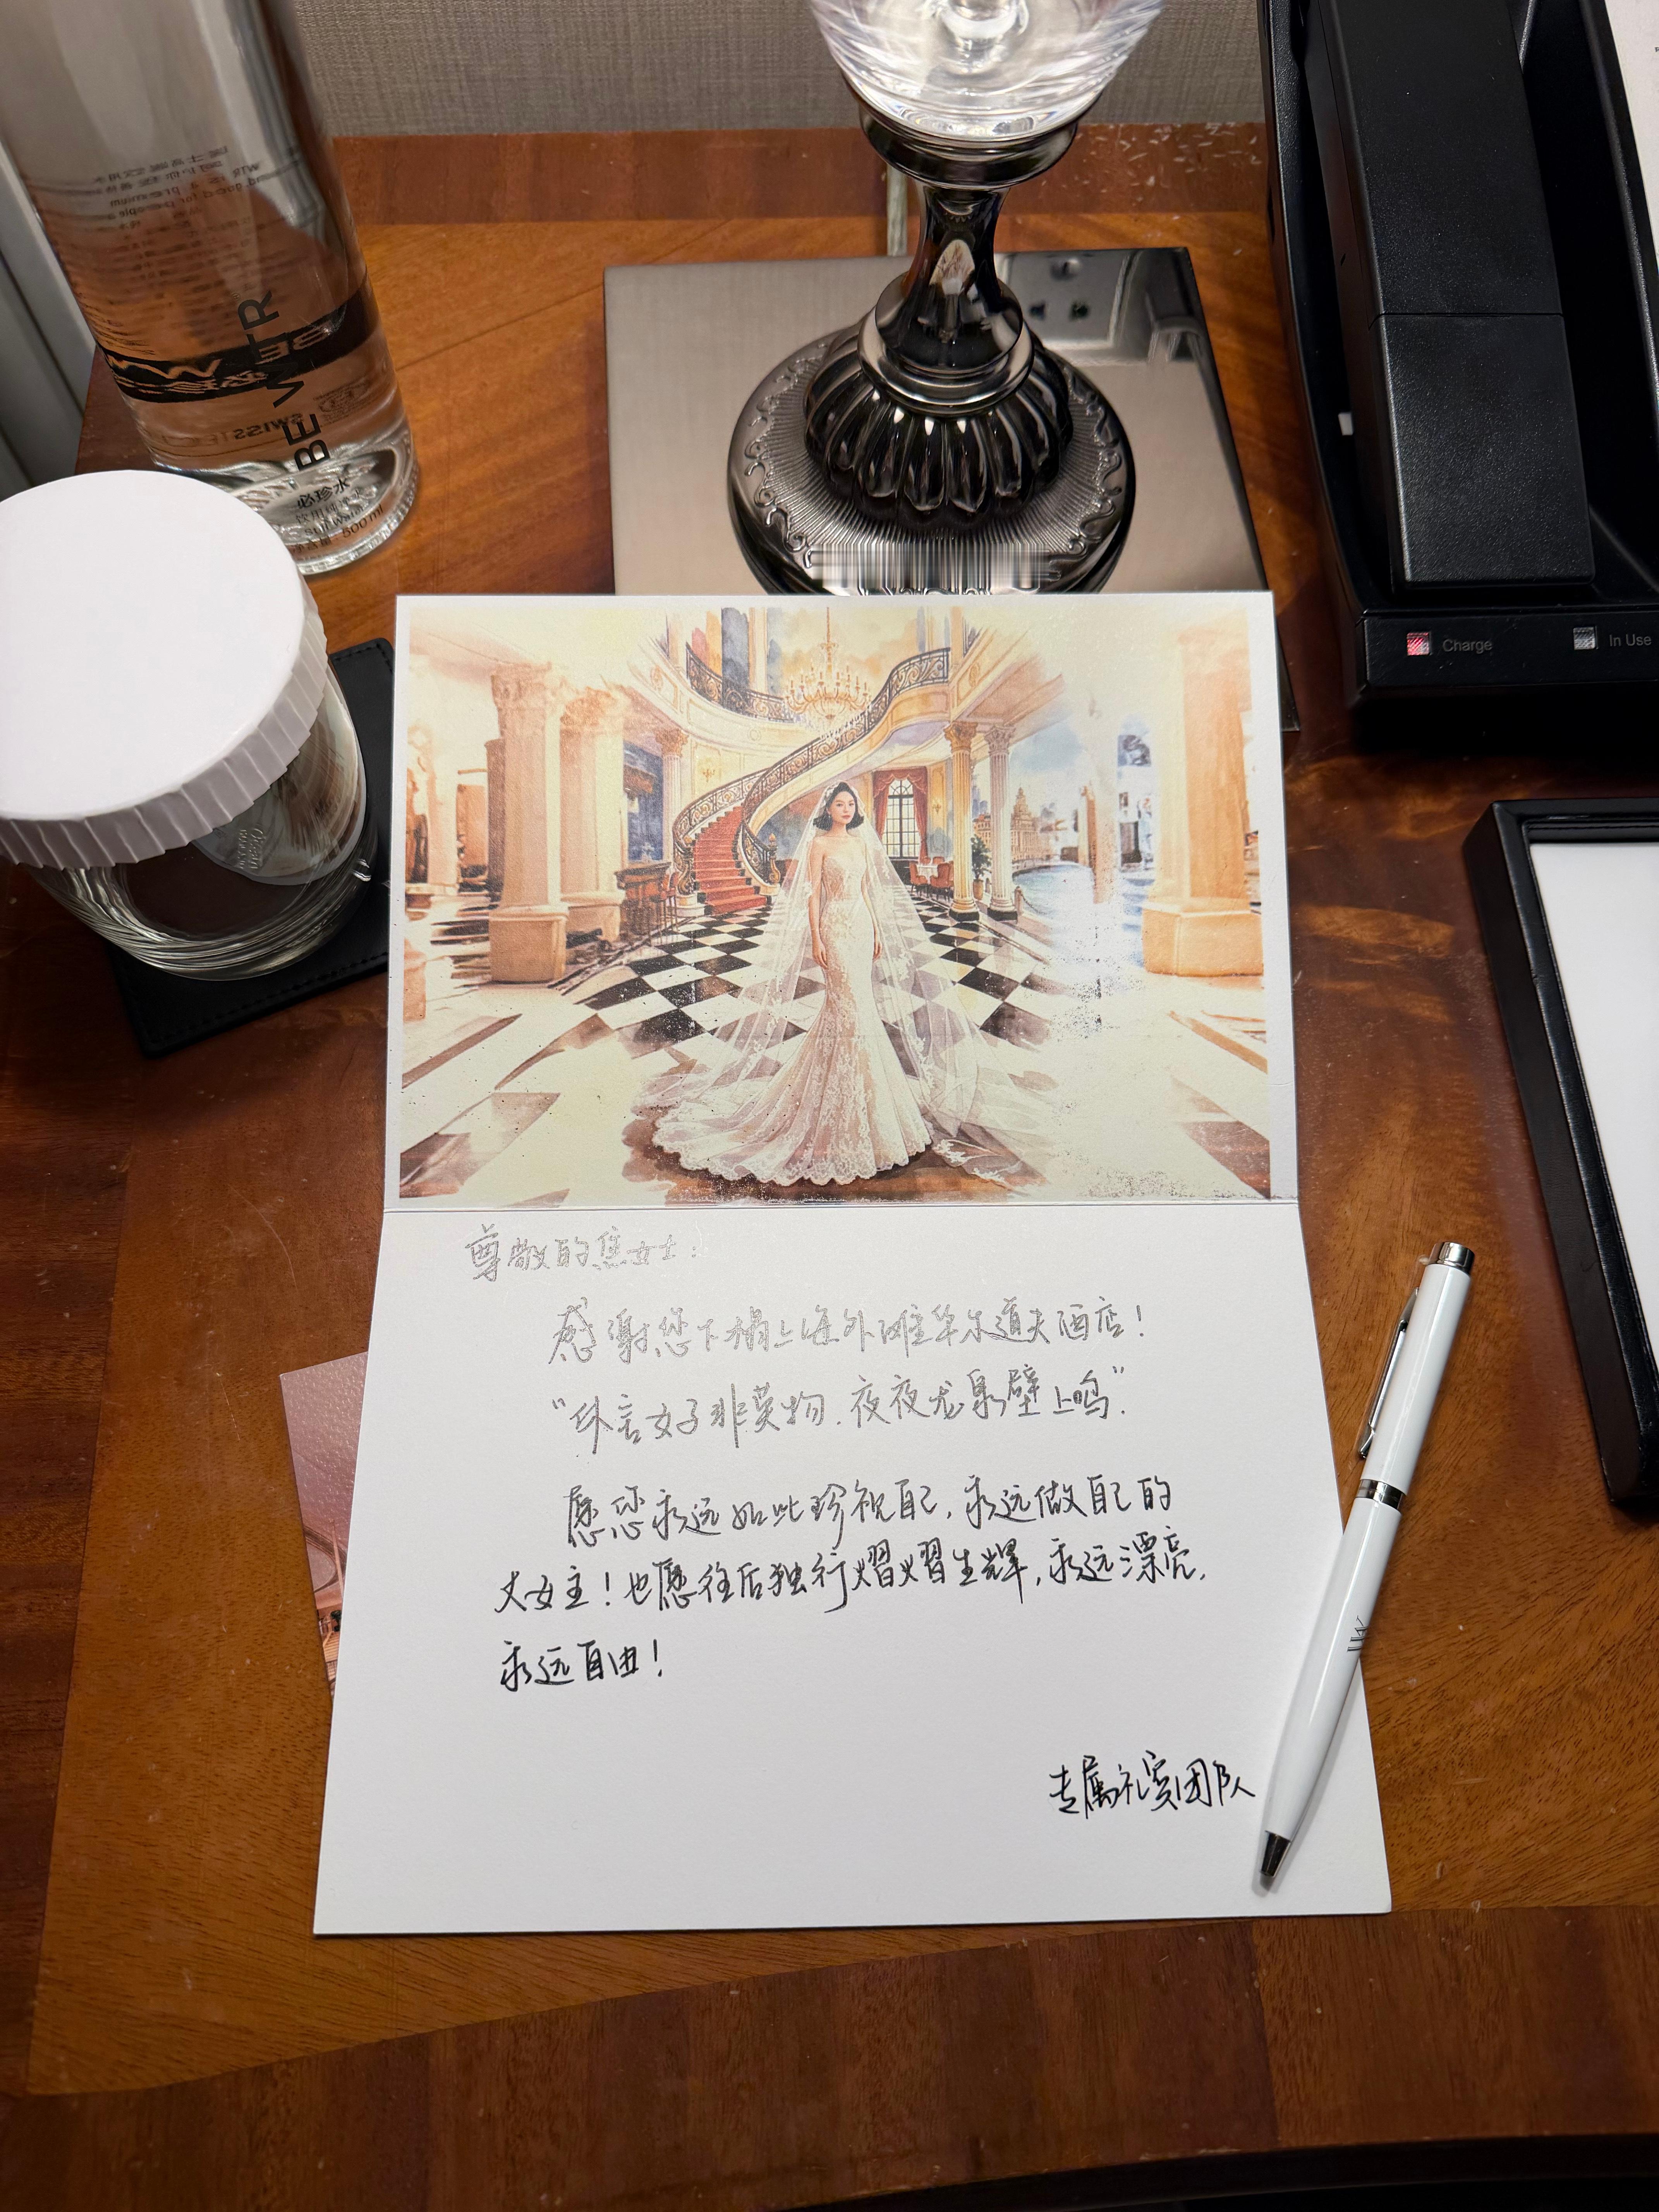 BE WTR
必珍水
500 ml
Charge
In Use
尊敬的焦女士：
感谢您下榻上海外滩华尔道夫酒店！
“休言女子非英物，夜夜龙泉壁上鸣”.
愿您永远如此珍视自己，永远做自己的
大女主！也愿往后独行熠熠生辉，永远漂亮，
永远自由！
专属礼宾团队